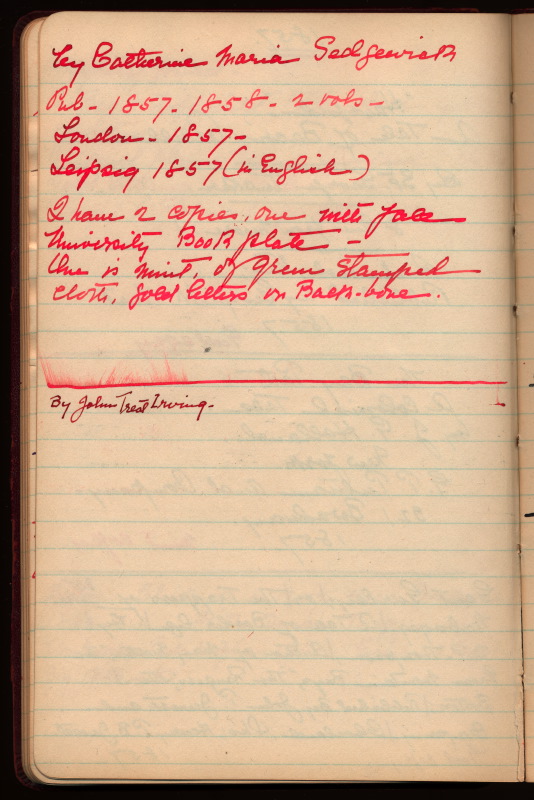 by Catherine Maria Sedgewick
Pub - 1857 - 1858 - 2 vols -
London - 1857 -
Leipzig 1857 (in English)
I have 2 copies, one with Yale
University Book plate -
One is mint, of green stamped
cloth, gold letters on Back-bone.
By John Treat Irving -